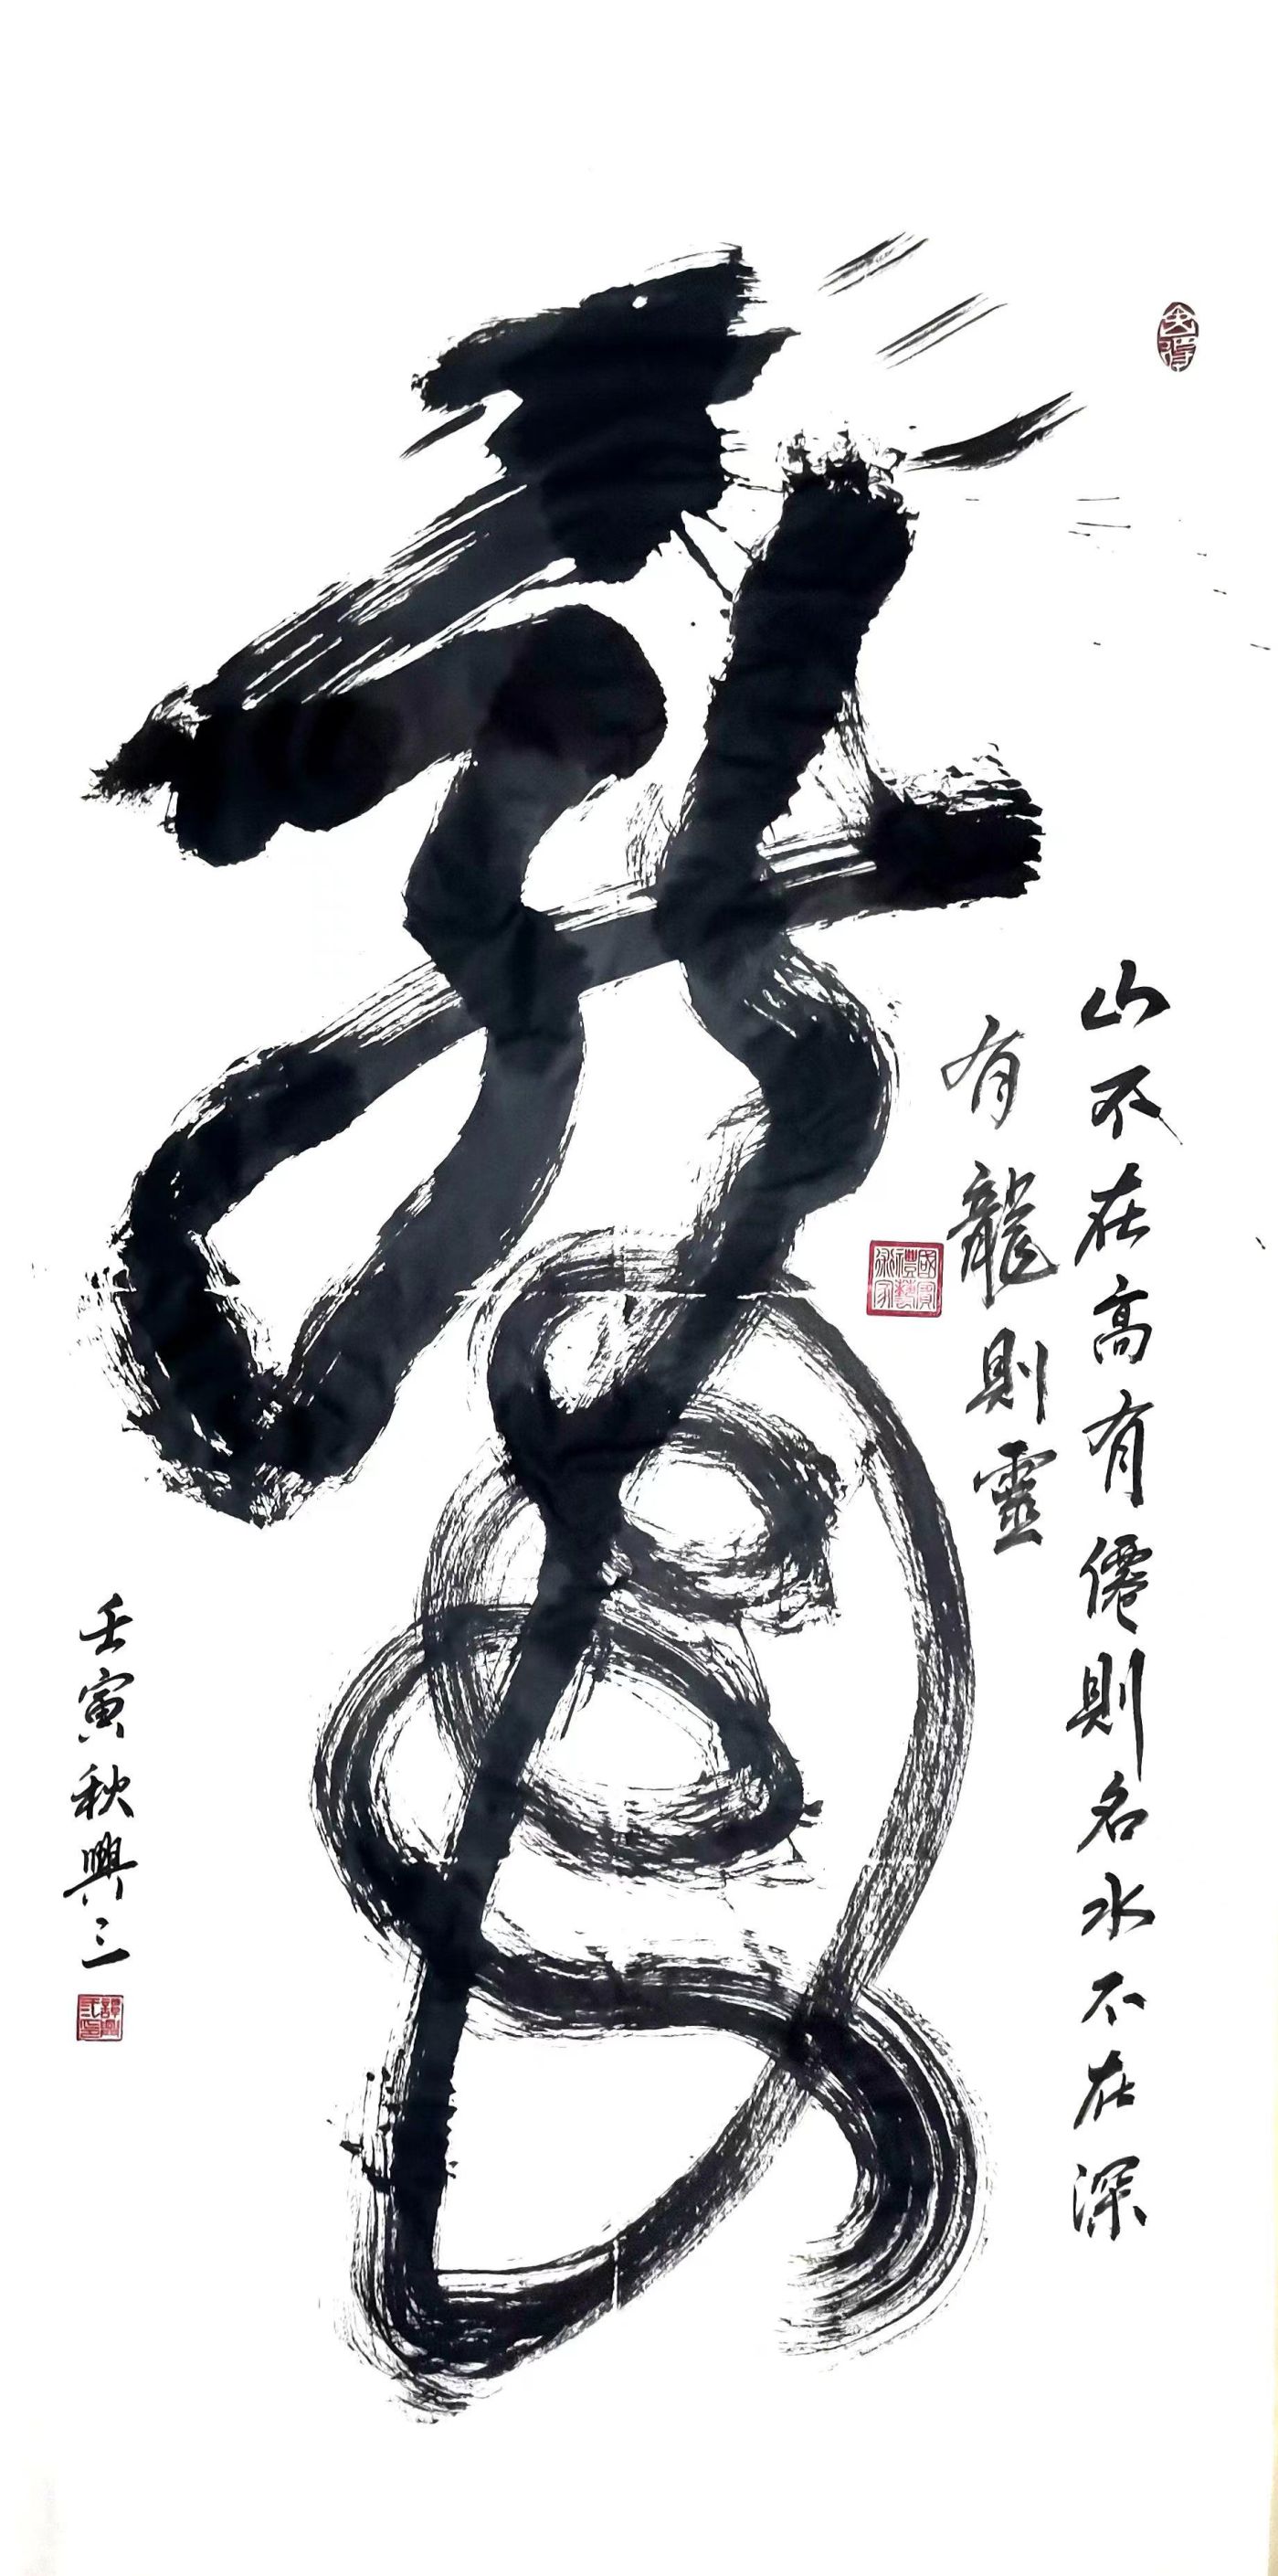 龍
山不在高有僊則名水不在深
有龍則靈
壬寅秋興三